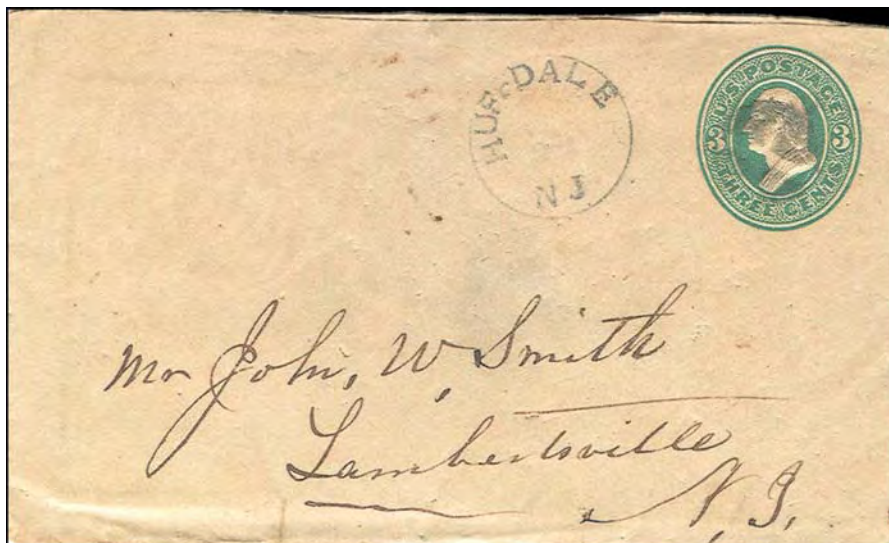 N J
U.S. POSTAGE
3 3
THREE CENTS
Mr John, W, Smith
Lambertsville
N, J,